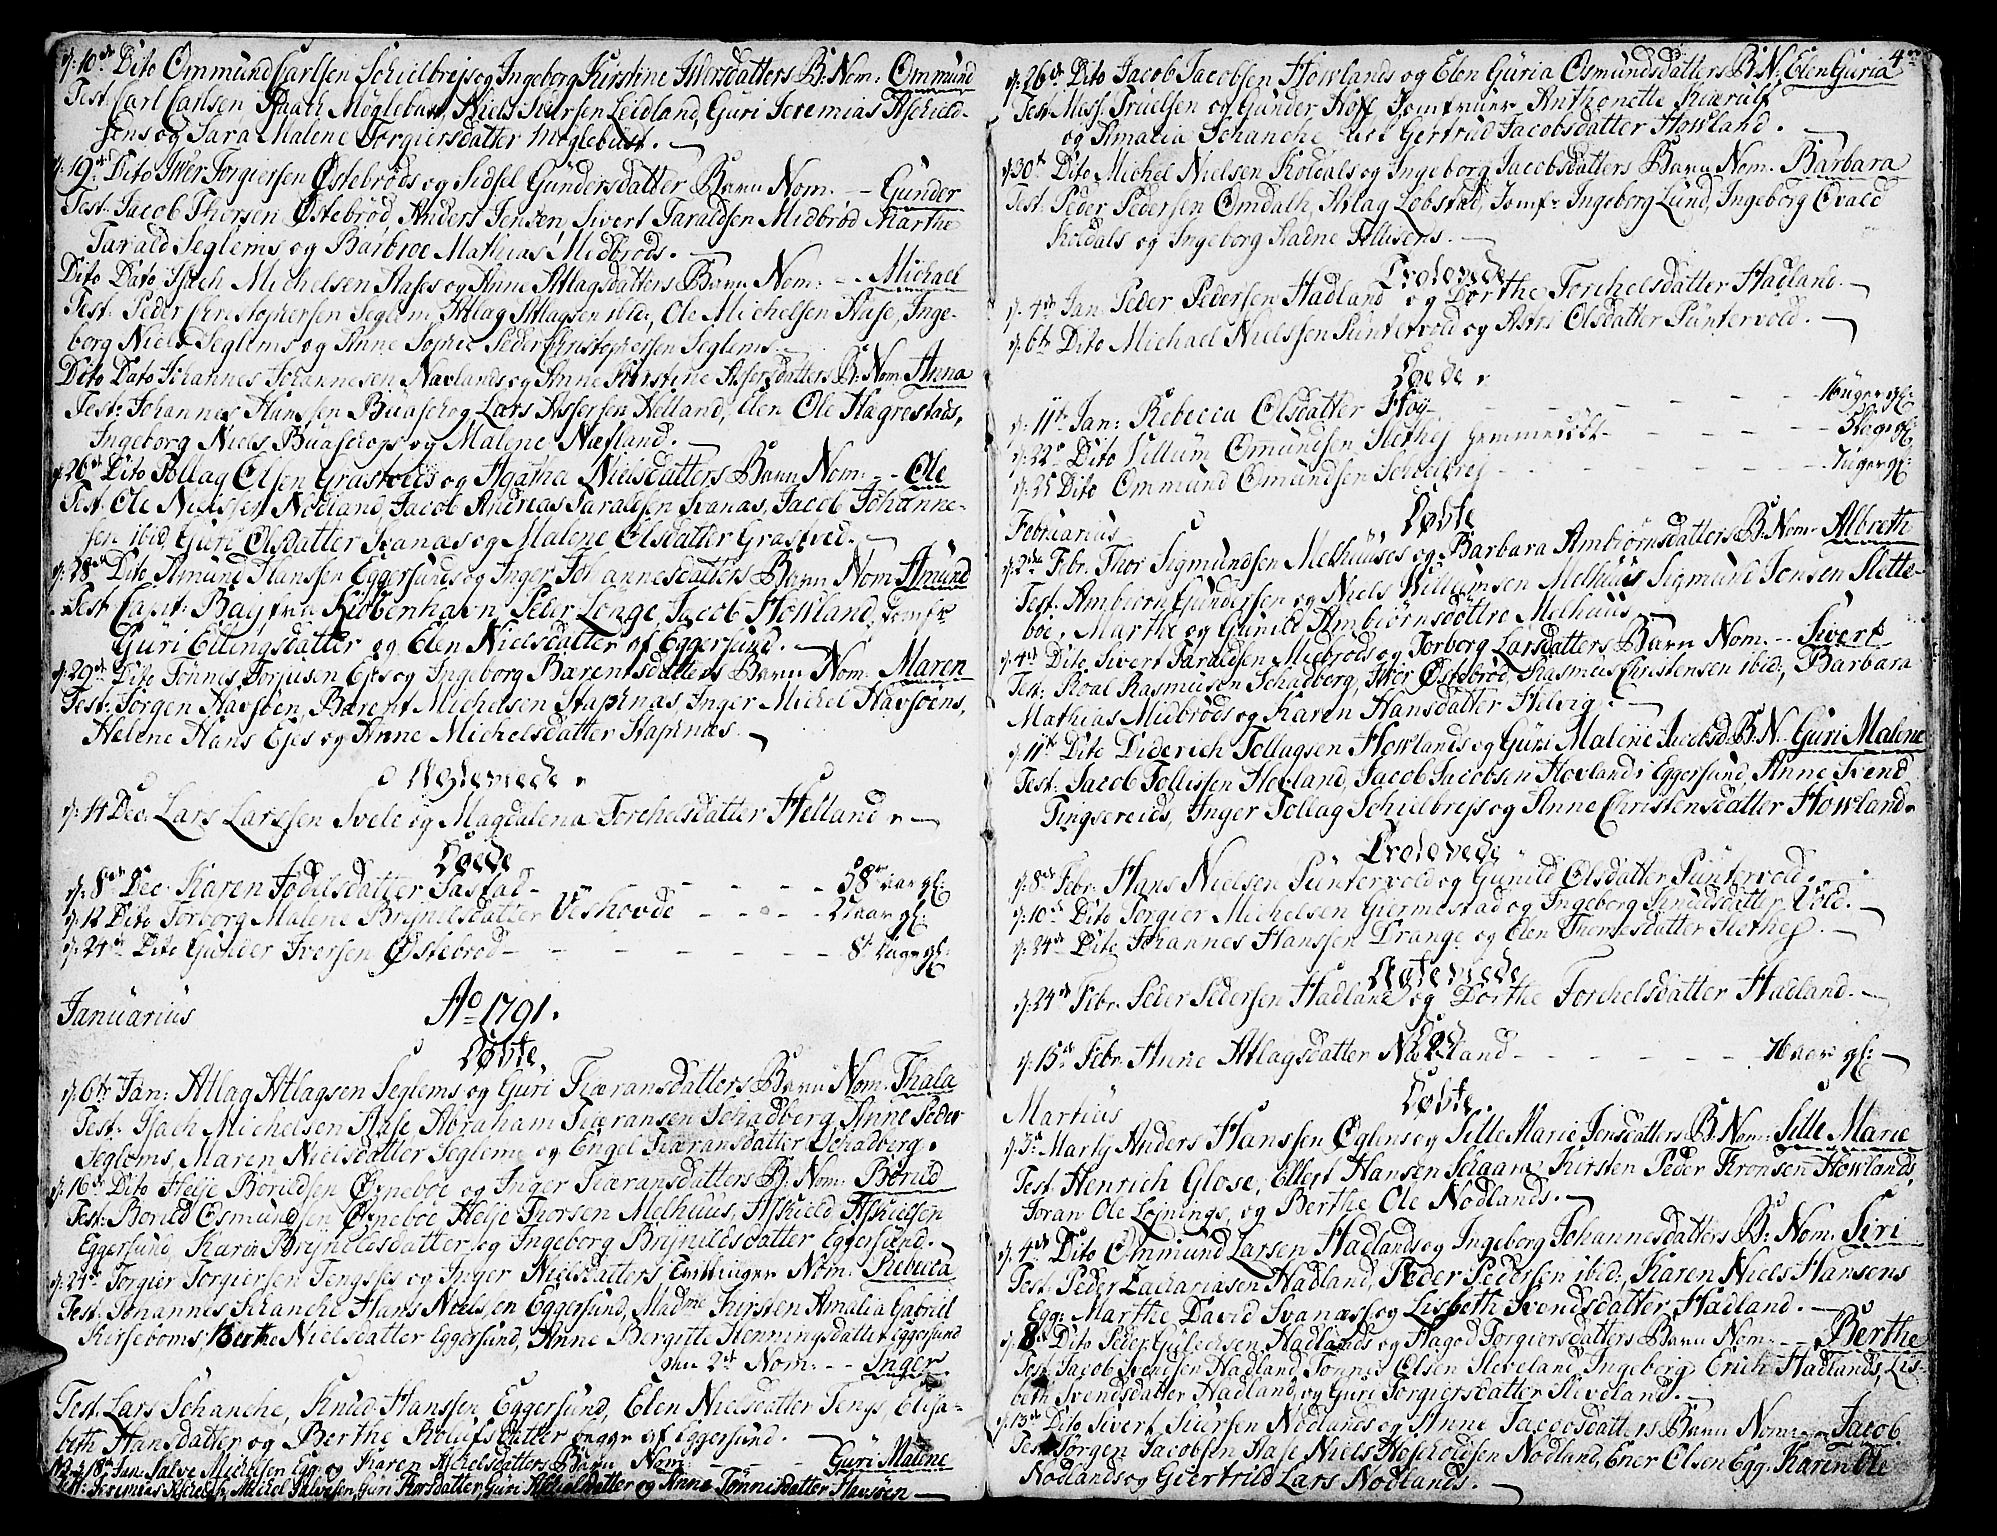 d: 10de Dito Ommund Carlsen Schielbrejs og Ingeborg Kirstine Iwersdatters B: Nom: Ommund
Test: Carl Carlsen, Møglebust, Niels Iversen Leidland, Guri Jeremias Aschield-
sens og Sara Malene Torgiersdatter Møglebust.
d: 19de Dito Iwer Torgiersen Østebrøds og Sidsel Gundersdatter Barn Nom: -- Gunder
Test: Jacob Thorsen Østebrød, Anders Jensen, Sivert Taraldsen Midbrød Marthe
Tarald Seglems og Barbroe Mathias Midbrøds.
Dito Dato Isach Michelsen Hases og Anne Atlagsdatters Barn Nom: -- Michael
Test: Peder Christophersen Seglem, Atlag Atlagsen ibid:, Ole Michelsen Hase, Inge-
borg Niels Seglems og Anne Sophie Peder Christophersen Seglems.
Dito Dato Johannes Johannesen Navlands og Anne Kirstine Assersdatters B: Nom: Anna
Test: Johannes Hanssen Buascher og Lars Assersen Helland, Elen Ole Hægrestads,
Ingeborg Niels Buascherops og Malene Næfland.
d: 26de Dito Tollag Olsen Grastveds og Agatha Nielsdatters Barn Nom: -- Ole
Test: Ole Nielssen Nodland, Jacob Andreas Taraldsen Svanas, Jacob Johanne-
sen ibid, Guri Olsdatter Svanæs og Malene Olsdatter Grastved.
d: 28de Dito Amund Hanssen Eggersunds og Inger Johannesdatters Barn Nom: Amund
Test: Capit: Baij fra Kiøbenhavn, Peder Longe, Jacob Howland, Jomfr
Guri Ellingsdatter og Elen Nielsdatter af Eggersund.
d: 29de Dito Tønnes Torjusen Ejes og Ingeborg Bærentsdatters Barn Nom: Maren
Test: Jørgen Havsøen, Bærent Michelsen Stapnæs, Inger Michel Havsøens,
Helene Hans Ejes og Anne Michelsdatter Stapnæs.
Ægteviede
d: 14 Dec. Lars Larssen Svele og Magdalena Torchelsdatter Helland
Døde
d: 8de Dec. Karen Jodelsdatter Tastad - - - - - 58 aar gl:
d: 12 Dito Torborg Malene Brynelsdatter Veshovde - - - - 2 aar gl:
d: 24de Dito Gunder Iversen Østebrød - - - - - 8 Uger gl:
Januarius Ao 1791.
Døbte
d: 6te Jan: Atlag Atlagsen Seglems og Guri Tiæransdatters Barn Nom: Thala
Test: Isach Michelsen Hase, Abraham Tiæransen Schadberg, Anne Peder
Seglems, Maren Nielsdatter Seglem og Engel Tiæransdatter Schadberg.
d: 16de Dito Helje Borildsen Ørneboe og Inger Tiæransdatters B: Nom: Borild
Test: Borild Osmundsen Ørneboe, Helje Thorsen Melhuus, Askield Askielsen
Eggersund, Karen Brynildsdatter og Ingeborg Brynildsdatter Eggersund.
d: 24de Torgier Torgiersen Tengsses og Inger Nielsdatters Tvillinger Nom: Rebecca
Test: Johannes Schanche, Hans Nielsen Eggersund, Madme Kirsten Amalia Gabriel
Kirsebøms, Berthe Nielsdatter Eggersund, Anne Bergitte Henningsdatter Eggersund
den 2de Nom: -- Inger
Test: Lars Schanche, Knud Hanssen Eggersund, Elen Nielsdatter Tengs, Elisa-
beth Hansdatter og Berthe Roulfsdatter begge af Eggersund.
d: 18de Jan: Salve Michelsen Egg: og Karen Aschelsdatters Barn Nom: Guri Malene
Test: Jeremias Aschield, Michel Salvesen, Guri Thorsdatter, Guri Aschielsdatter og Anne Tønnesdatter Havsøen
4
d: 26de Dito Jacob Jacobsen Howlands og Elen Guria Osmundsdatters B: N: Elen Guria
Test: Mess: Truelsen og Gunder Hoff Jomfruer Anthonette Kiærulf
og Amalia Schanche, Gertrud Jacobsdatter Howland.
d: 30te Dito Michel Nielsen Koldals og Ingeborg Jacobsdatters Barn Nom: Barbara
Test: Peder Pedersen Omdahl, Aslag Lobstad, Jomfr Ingeborg Lund, Ingeborg Evald
Koldals og Ingeborg Tollisens.
Trolovede
d: 4de Jan: Peder Pedersen Hadland og Dorthe Torchelsdatter Hadland.
d: 6te Dito Michael Nielssen Puntervold og Astri Olsdatter Puntervold.
Døde
d: 11te Jan: Rebecca Olsdatter Høy - - - - - 16 uger gl:
d: 22de Dito Villum Omundsen Slethej hjemmedøbt - - - - 5 dage gl:
d: 25 Dito Ommund Omundsen Schielbrej - - - - - 7 uger gl:
Februarius Døbte
d: 2den Febr. Thor Sigmundsen Melhuuses og Barbara Ambiørnsdatters B: Nom: Albreth
Test: Ambiorn Gundersen og Niels Willumsen Melhuus, Sigmund Jonsen Slette-
böe, Marthe og Gunild Ambiørnsdøttre Melhuus.
d: 4de Dito Sivert Taraldsen Midbrøds og Torborg Larsdatters Barn Nom: -- Sivert
Test: Roal Rasmusen Schadberg, Iver Østebrød, Rasmus Christensen ibid:, Barbara
Mathias Midbrøds og Karen Hansdatter Helvig.
d: 11te Dito Diderich Tollagsen Howlands og Guri Malene Jacobsd: B: N: Guri Malene
Test: Jacob Tollissen Hovland, Jacob Jacobsen Hovland i Eggersund, Anne Svend
Tingsereids, Inger Tollag Schielbrejs og Anne Christensdatter Howland.
Trolovede
d: 8de Febr. Hans Nielsen Puntervold og Gunild Olsdatter Puntervold.
d: 10de Dito Torgier Michelsen Giermestad og Ingeborg Knudsdatter Vold.
d: 24de Dito Johannes Hanssen Drange og Elen Thomesdatter Slethej.
Ægteviede
d: 24de Febr. Peder Pedersen Hadland og Dorthe Torchelsdatter Hadland.
Død
d: 15de Febr. Anne Atlagsdatter Nævland - - - - - 76 aar gl:
Martius Døbte.
d: 3de Martij Anders Hanssen Øglens og Sille Marie Jensdatters B: Nom: Sille Marie
Test: Henrich Glose, Ellert Hansen Seigam, Kirsten Peder Thronsen Howlands,
Joran Ole Lojnings, og Berthe Ole Nodlands.
d: 4de Dito Ommund Larsen Hadlands og Ingeborg Johannesdatters B: Nom: Siri
Test: Peder Zachariasen Hadland, Peder Pedersen ibid:, Karen Niels Hansens
Egg: Marthe David Svanæs og Lisbeth Svendsdatter Hadland.
d: 8de Dito Peder Gulichsen Hadlands og Magod Torgiersdatters Barn Nom: -- Berthe
Test: Jacob Svendsen Hadland, Tønnes Olsen Sleveland, Ingeborg Erich Hadlands, Lis-
beth Svendsdatter Hadland, og Guri Torgiersdatter Sleveland.
d: 13de Dito Sivert Siversen Nodlands og Anne Jacobsdatters Barn Nom: -- Jacob
Test: Jørgen Jacobsen Hase, Niels Nodland, Ener Olsen Egg: Karen Ole
Nodlands og Geertrild Lars Nodlands.